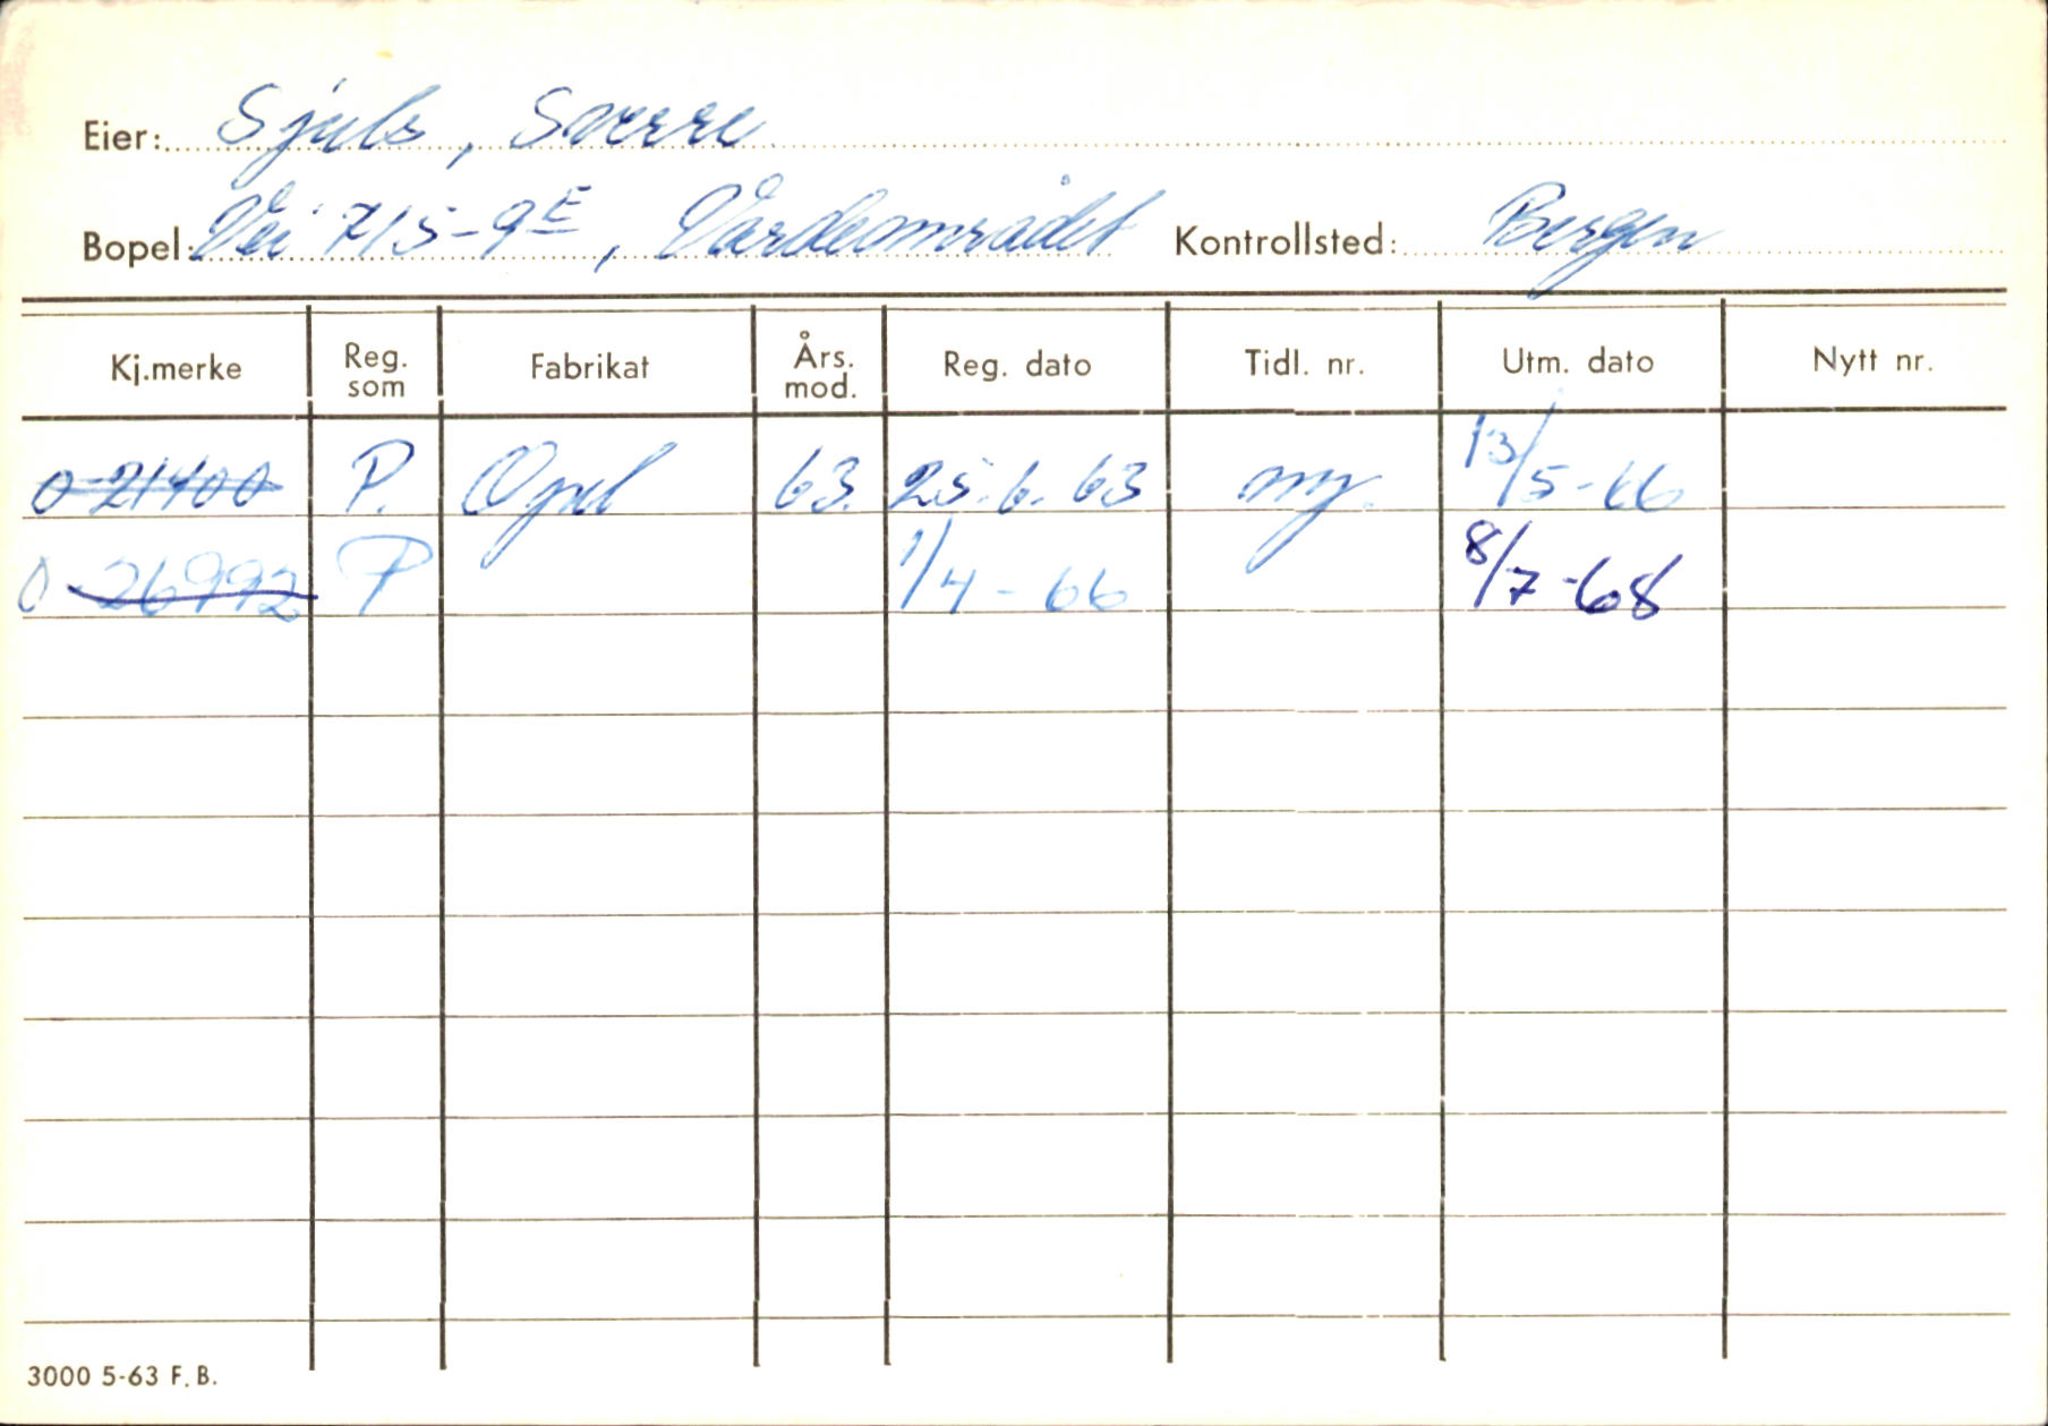 Eier: Sjuls, Sverre
Bopel: Vei 715-9E, Vardeområdet Kontrollsted: Bergen
Kj.merke Reg. som Fabrikat Års. mod. Reg. dato Tidl. nr. Utm. dato Nytt nr.
O-21400 P. Opel 63. 25.6.63 ny. 13/5-66
O-26992 P 1/4-66 8/7-68
3000 5-63 F.B.